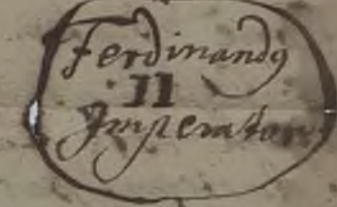 Ferdinandꝰ
II
Imperator